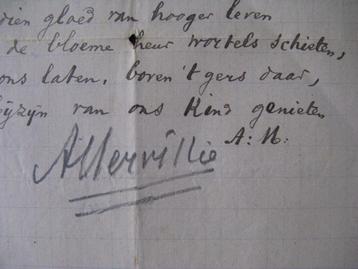 dien gloed van hooger leven
de bloeme heur wortels schieten,
ons laten, boven 't gers daar,
bijzijn van ons Kind genieten
A. N.